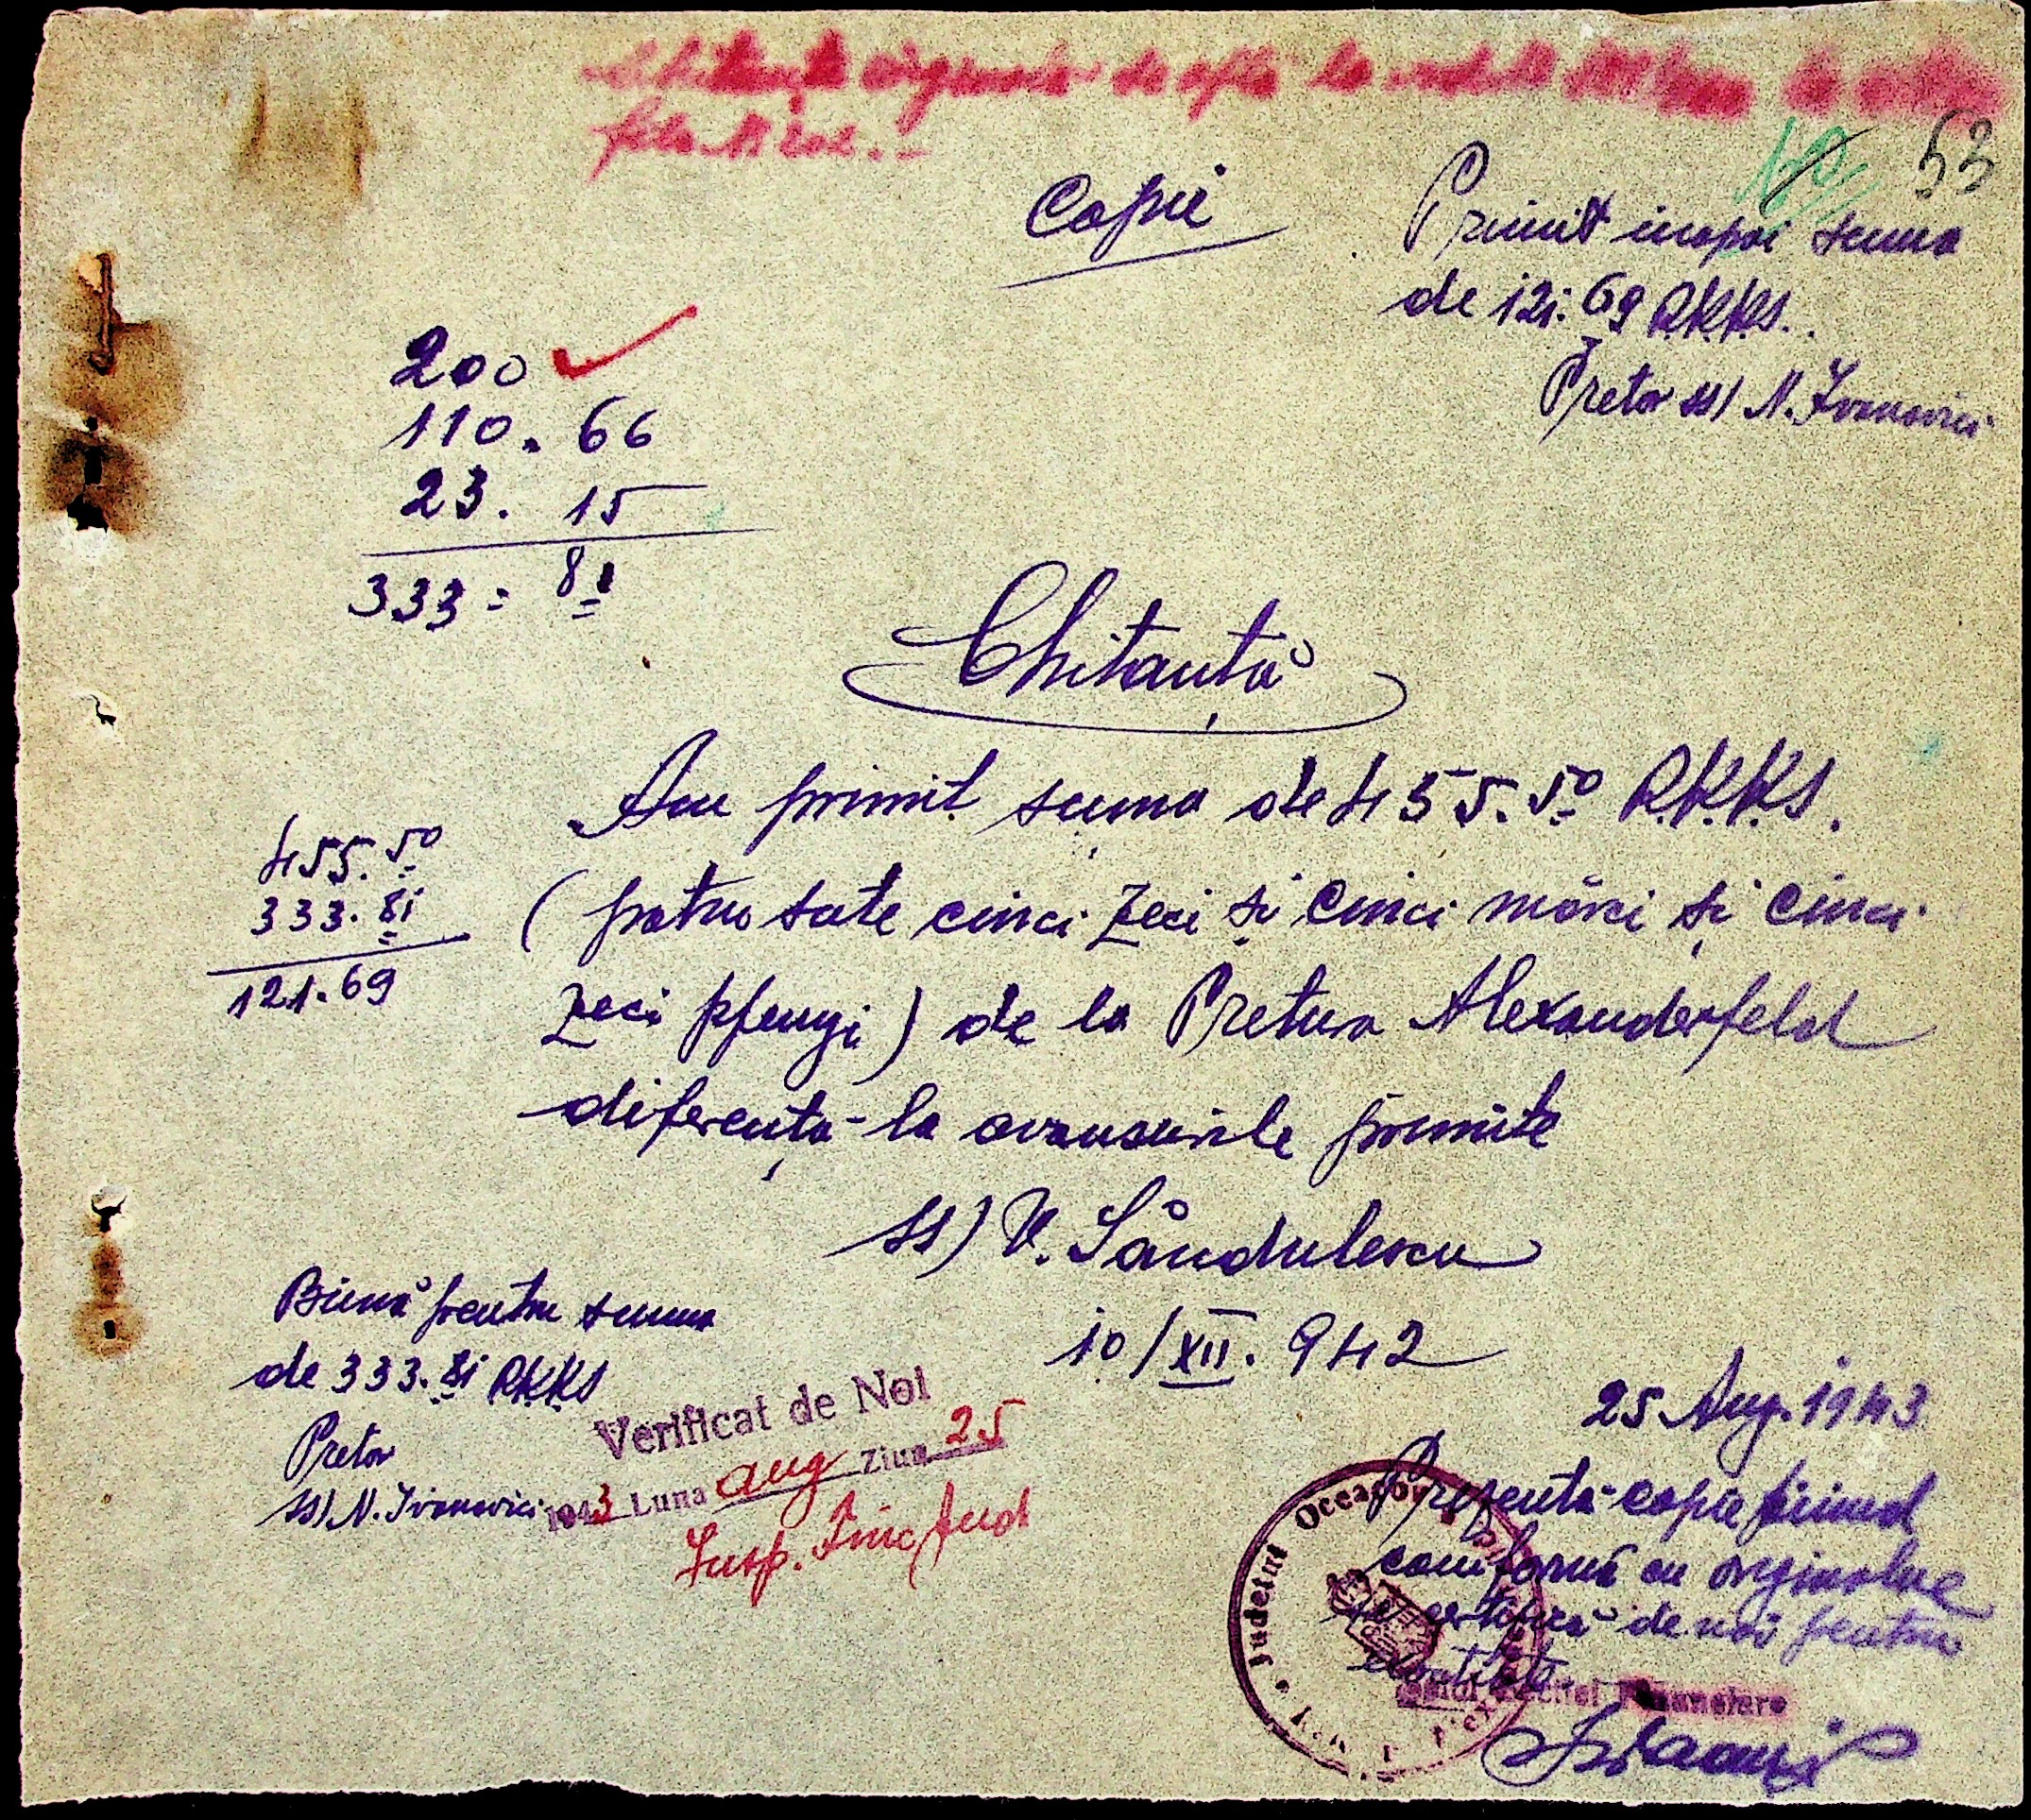 fila N 202.-
53
Copie
Primit inapoi suma
de 121.69 R.K.K.S.
Pretor ss) N. Ivanovici
200
110. 66
23. 15
333 = 81
Chitanță
Am primit suma de 455.50 R.K.K.S.
(patru sute cinci zeci și cinci mărci și cinci
zeci pfengi) de la Pretura Alexanderfeld
diferența la avansurile primite
455.50
333.81
121.69
ss) V. Săndulescu
10/XII.942
Bună pentru suma
de 333.81 RKKS
Pretor
ss) N. Ivanovici
Verificat de Noi
1943 Luna aug Ziua 25
Insp. Finc Jud
25 Aug. 1943
Prezenta copie fiind
conformă cu originalul
se certifică de noi pentru
Județul Oceacov